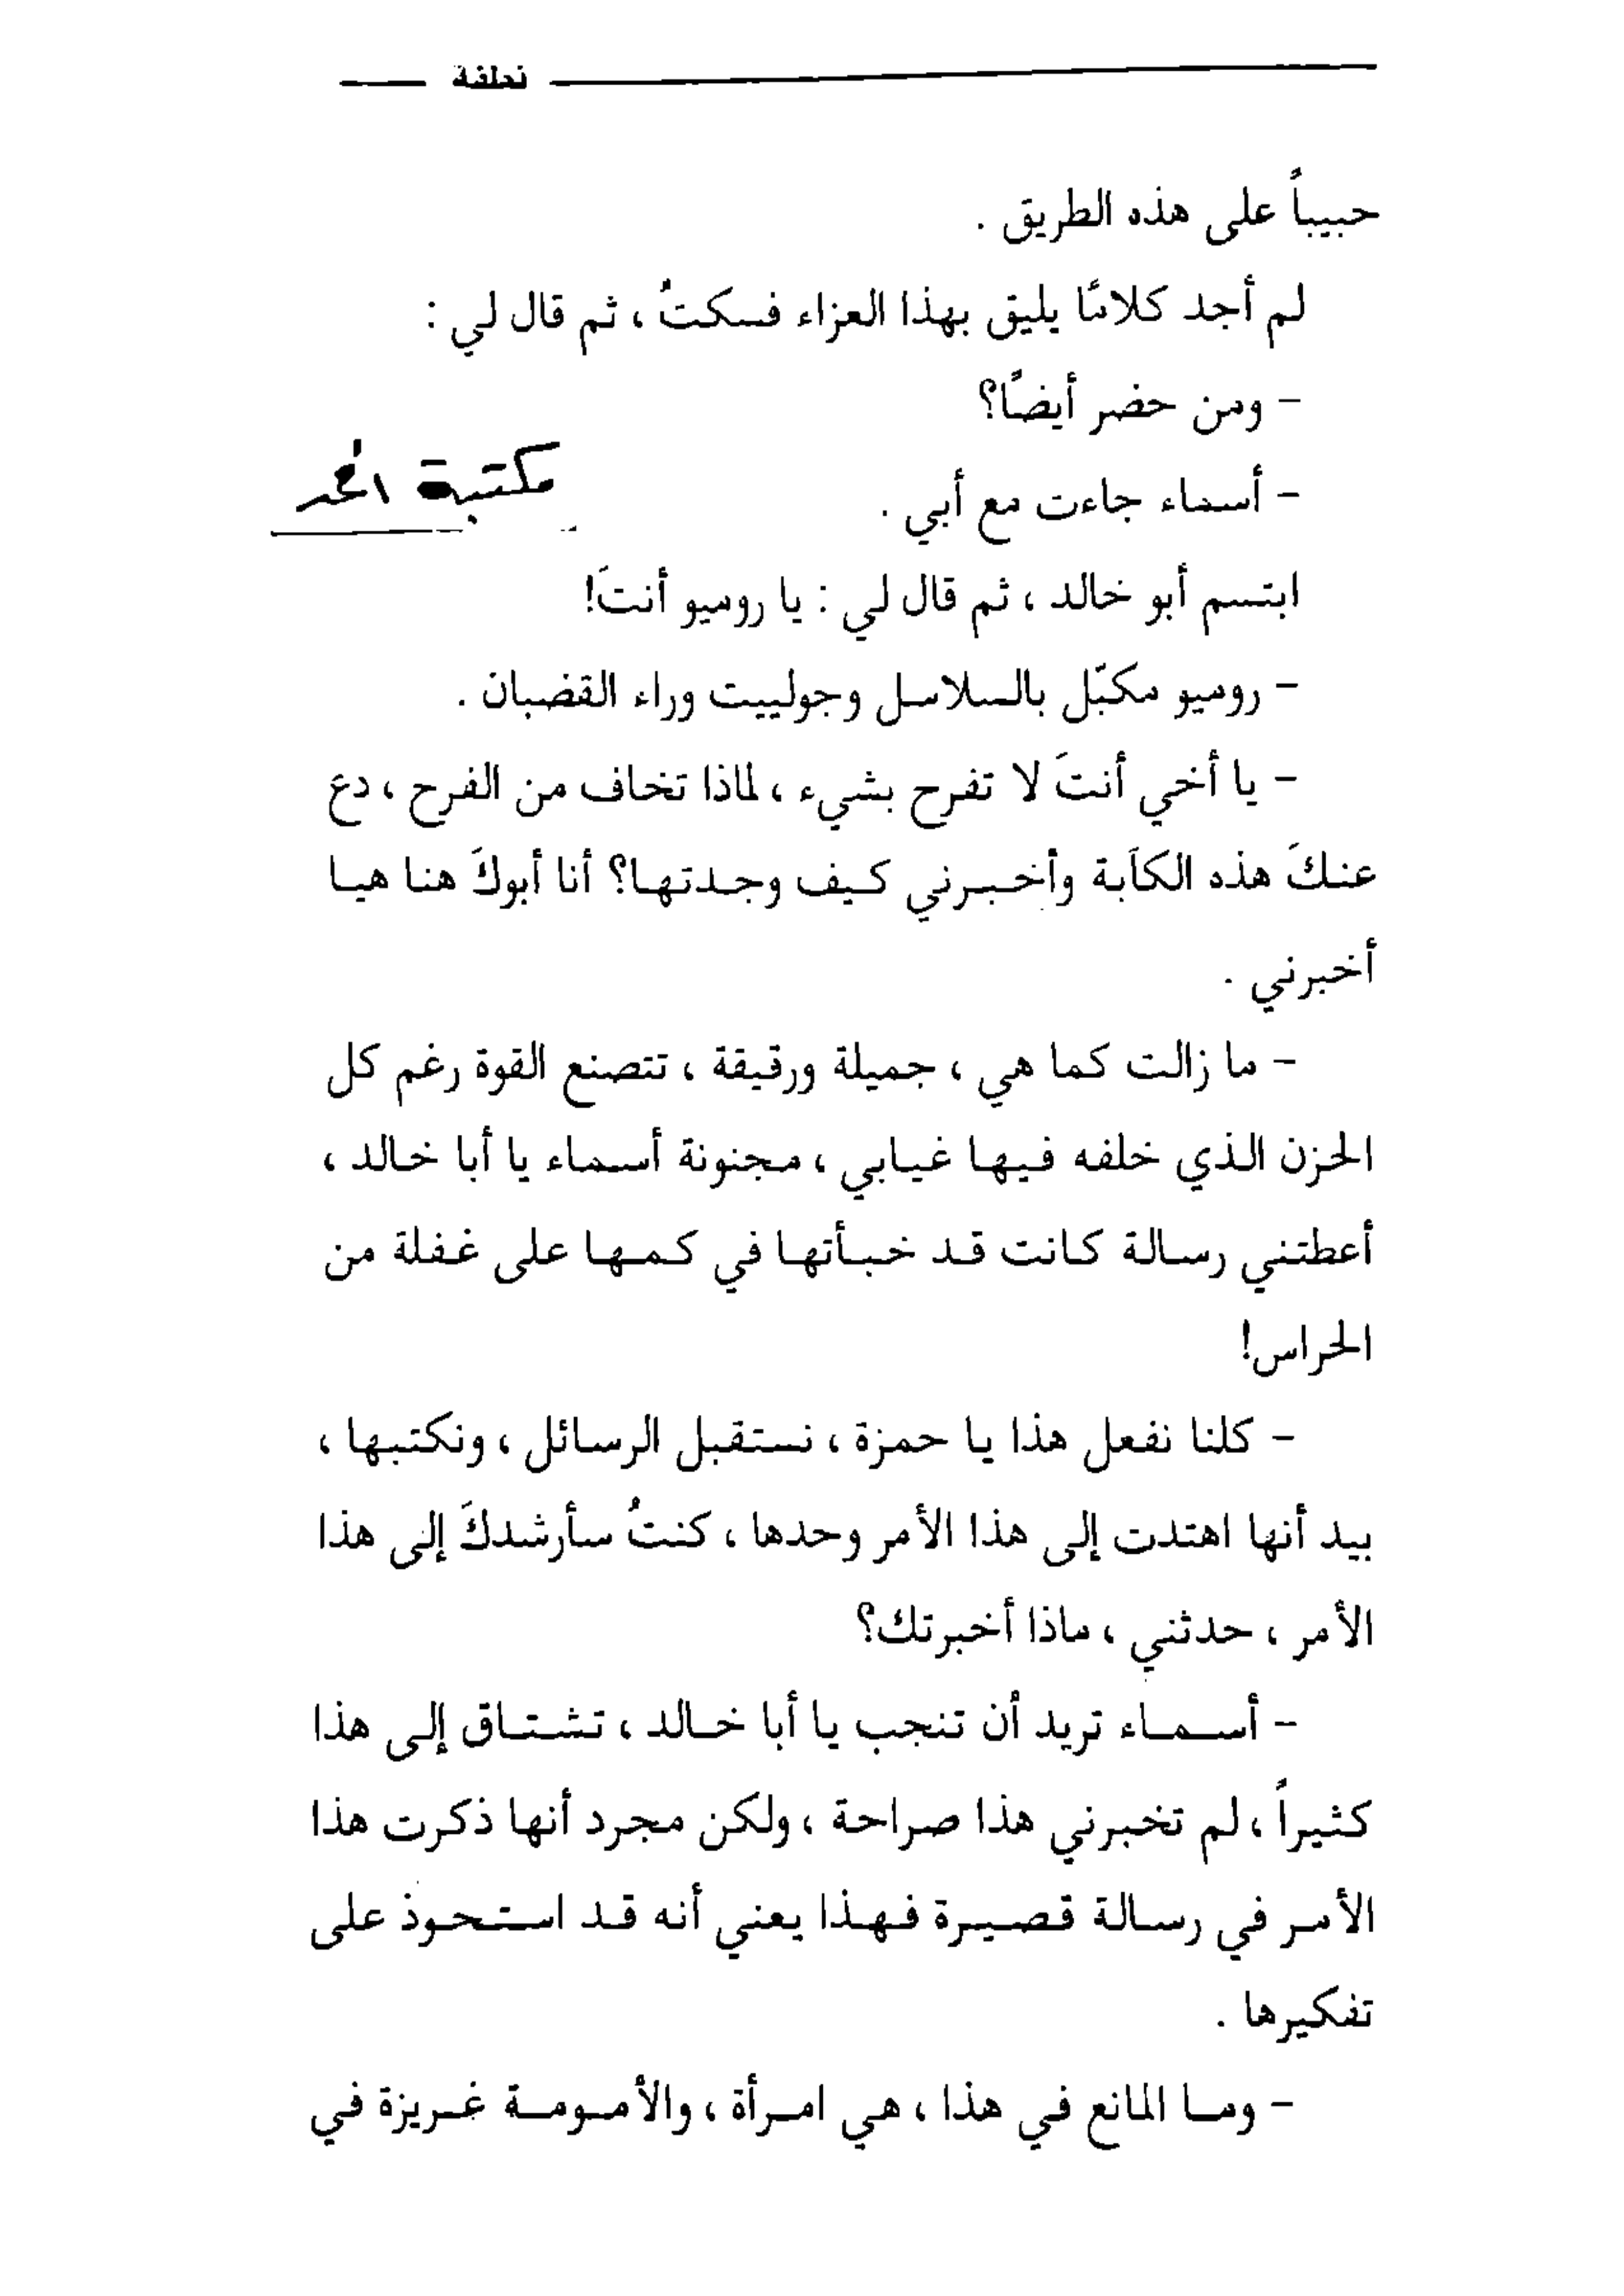 نطفة
حبيباً على هذه الطريق .
لم أجد كلامًا يليق بهذا العزاء فسكتُ ، ثم قال لي :
- ومن حضر أيضًا؟
- أسماء جاءت مع أبي .
مكتبة
ابتسم أبو خالد ، ثم قال لي : يا روميو أنتَ!
- روميو مكبّل بالسلاسل وجولييت وراء القضبان .
- يا أخي أنتَ لا تفرح بشيء ، لماذا تخاف من الفرح ، دع
عنكَ هذه الكآبة وأخبرني كيف وجدتها؟ أنا أبوكَ هنا هيا
أخبرني .
- ما زالت كما هي ، جميلة ورقيقة ، تتصنع القوة رغم كل
الحزن الذي خلفه فيها غيابي ، مجنونة أسماء يا أبا خالد ،
أعطتني رسالة كانت قد خبأتها في كمها على غفلة من
الحراس!
- كلنا نفعل هذا يا حمزة ، نستقبل الرسائل ، ونكتبها ،
بيد أنها اهتدت إلى هذا الأمر وحدها ، كنتُ سأرشدكَ إلى هذا
الأمر ، حدثني ، ماذا أخبرتك؟
- أسماء تريد أن تنجب يا أبا خالد ، تشتاق إلى هذا
كثيراً ، لم تخبرني هذا صراحة ، ولكن مجرد أنها ذكرت هذا
الأمر في رسالة قصيرة فهذا يعني أنه قد استحوذ على
تفكيرها .
- وما المانع في هذا ، هي امرأة ، والأمومة غريزة في